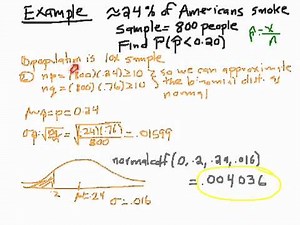 Example ≈24% of Americans smoke
Sample = 800 people
Find P(p̂ < 0.20) p̂ = x/n
① population is 10x sample
② np = (800)(.24) ≥ 10 } so we can approximate
nq = (800)(.76) ≥ 10 } the binomial dist. as
normal
μp̂ = p = 0.24
σp̂ = √(pq/n) = √((.24)(.76)/800) = .01599
normalcdf (0, .2, .24, .016)
= .004036
.2 μ=.24 σ=.016